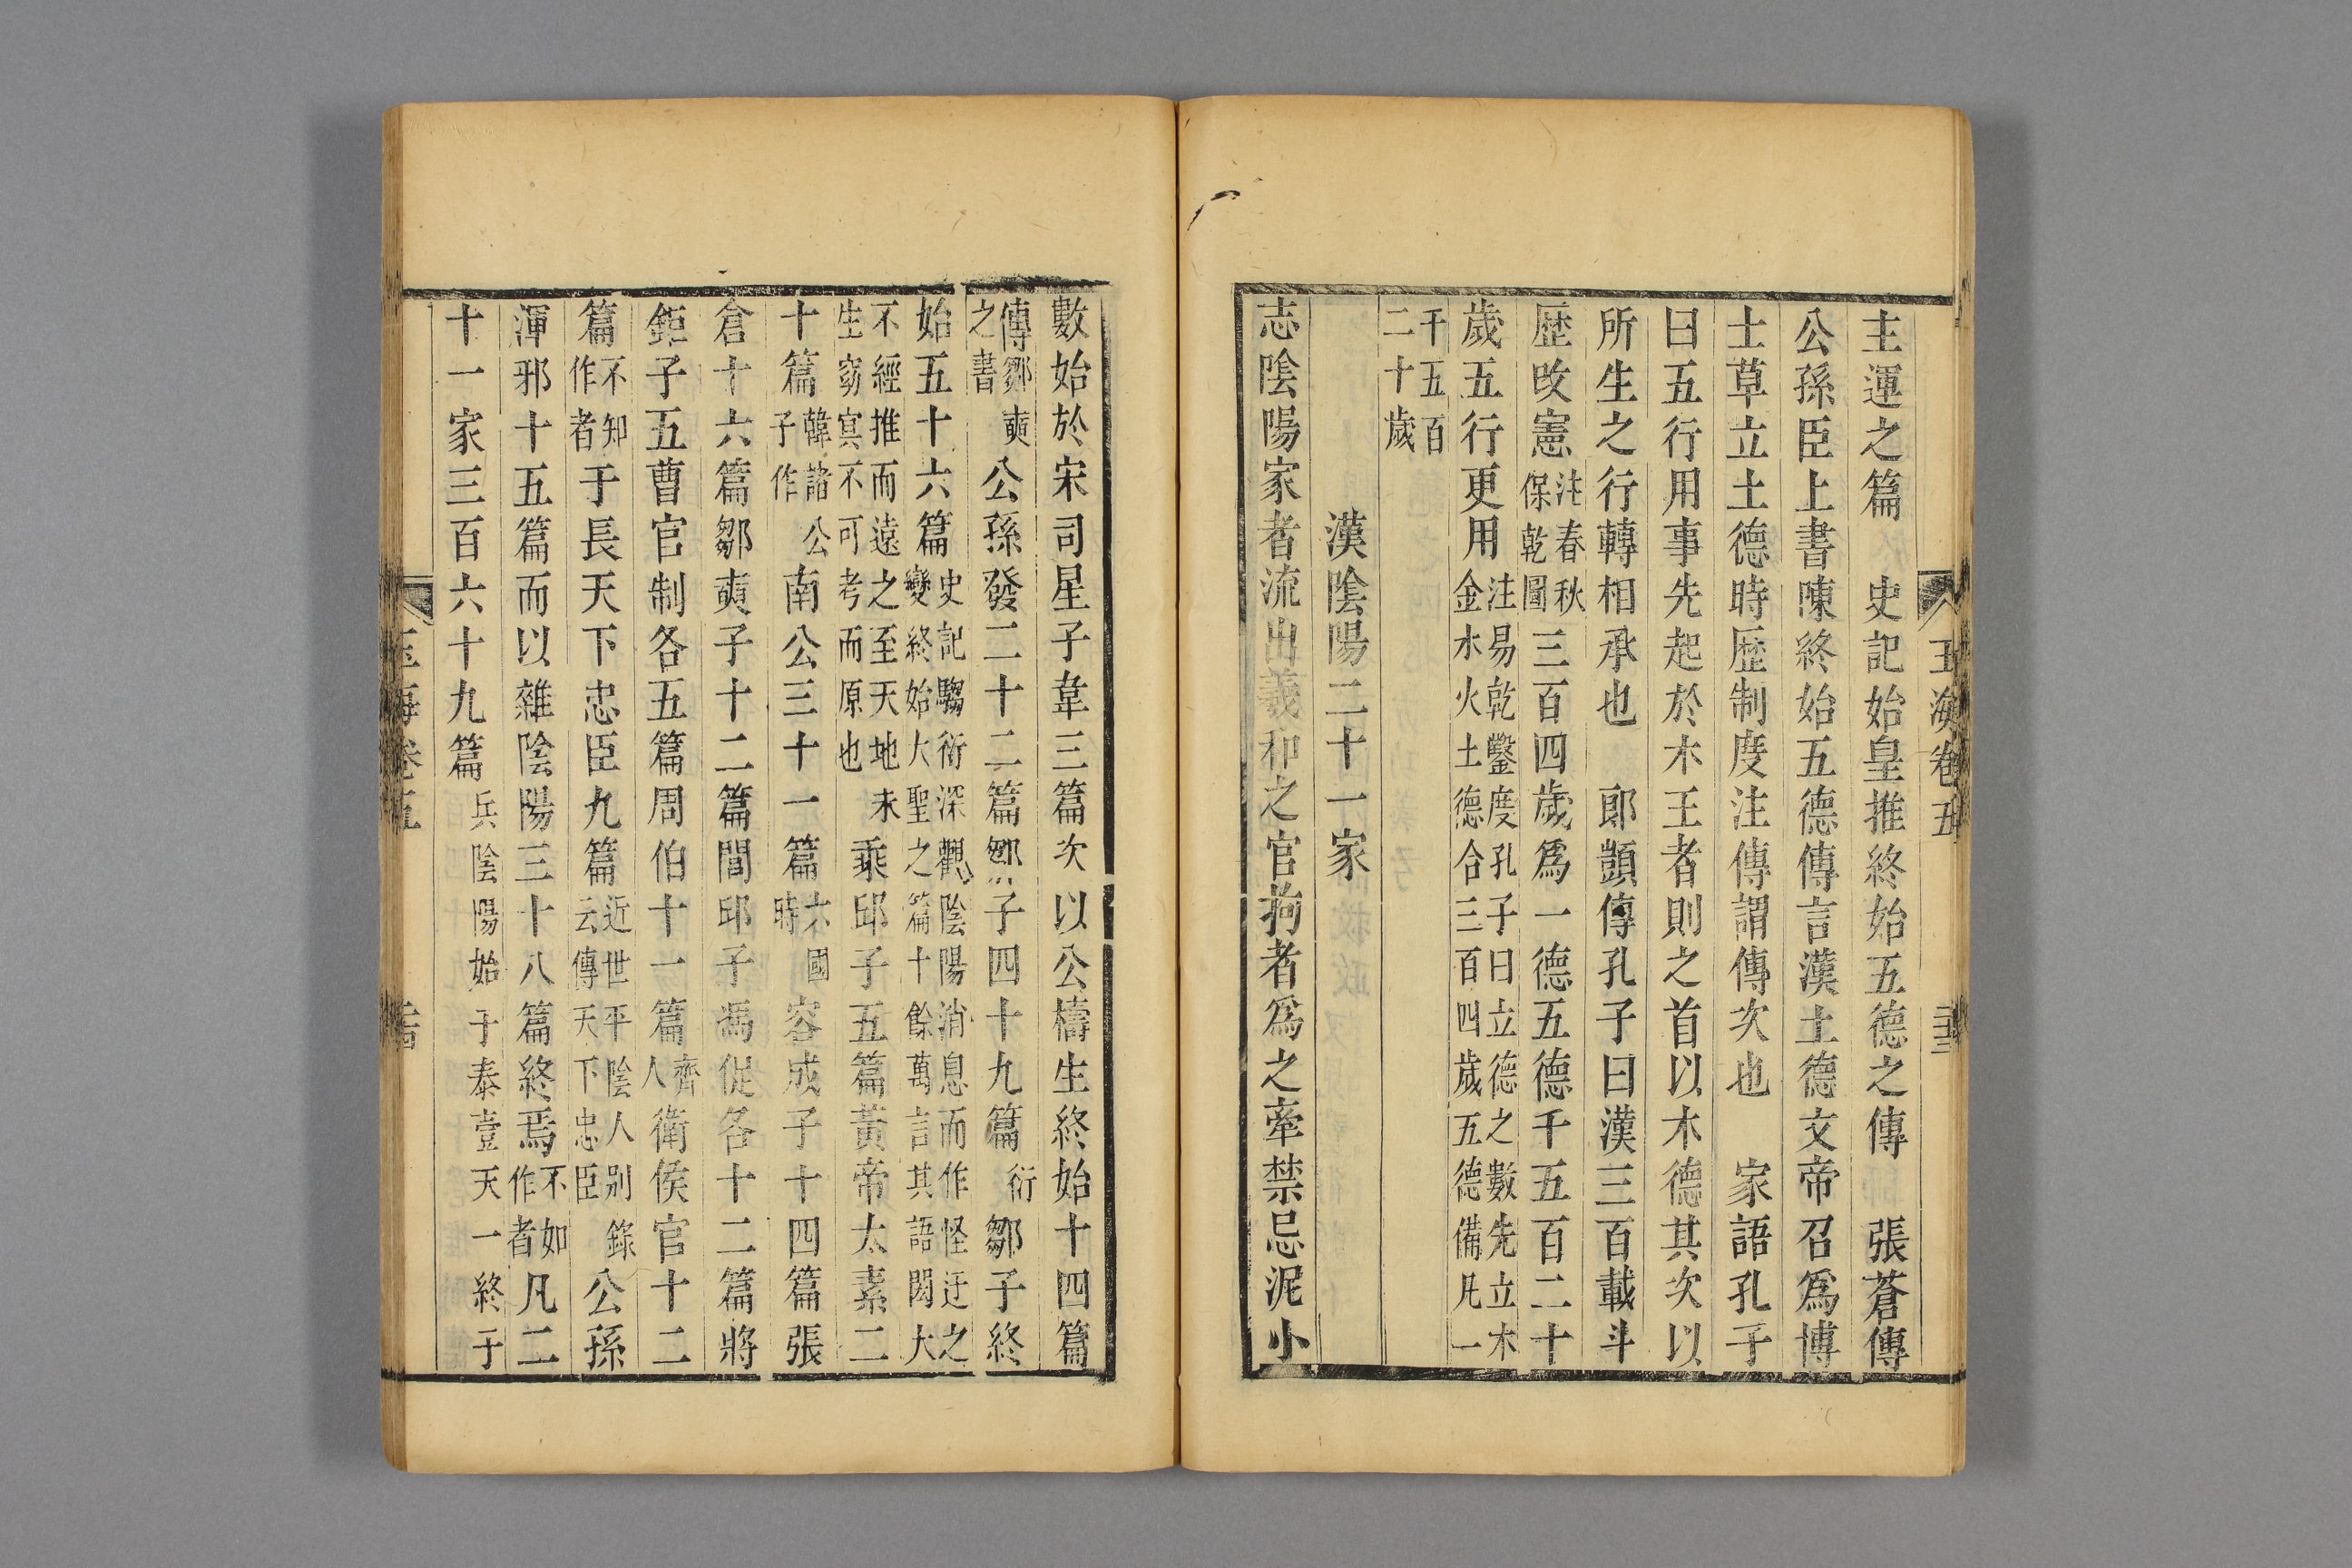 玉海卷五
主運之篇 史記始皇推終始五德之傳 張蒼傳
公孫臣上書陳終始五德傳言漢土德文帝召爲博
士草立土德時歴制度注傳謂傳次也 家語孔子
曰五行用事先起於木王者則之首以木德其次以
所生之行轉相承也 郎顗傳孔子曰漢三百載斗
歴改憲注春秋保乾圖三百四歲爲一德五德千五百二十
歲五行更用注易乾鑿度孔子曰立德之數先立木金水火土德合三百四歲五德備凡一
千五百二十歲
漢陰陽二十一家
志陰陽家者流出羲和之官拘者爲之牽禁忌泥小
數始於宋司星子韋三篇次以公檮生終始十四篇
傳鄒奭之書公孫發二十二篇鄒子四十九篇衍鄒子終
始五十六篇史記騶衍深觀陰陽消息而作怪迂之變終始大聖之篇十餘萬言其語閎大
不經推而遠之至天地未生窈冥不可考而原也乘邱子五篇黃帝太素二
十篇韓諸公子作南公三十一篇六國時容成子十四篇張
倉十六篇鄒奭子十二篇閭邱子馮促各十二篇將
鉅子五曹官制各五篇周伯十一篇齊人衛侯官十二
篇不知作者于長天下忠臣九篇近世平陰人別錄云傳天下忠臣公孫
渾邪十五篇而以雜陰陽三十八篇終焉不知作者凡二
十一家三百六十九篇兵陰陽始于泰壹天一終于
玉海卷五